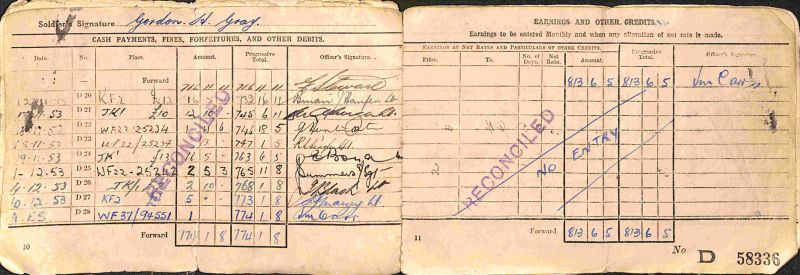 Soldier's Signature Gordon. H. Gray
CASH PAYMENTS, FINES, FORFEITURES, AND OTHER DEBITS.
Date. No. Place. Amount. Progressive Total. Officer's Signature.
Forward 716 11 11 716 11 11 Stewart
D 20 KF2 £13 16 5 732 16 11
53 D 21 TK1 £10 12 10 745 6 11
53 D 22 WF22-25234 1 11 6 746 18 5
53 D 23 WF22/25234 747 1 5
19-11-53 D 24 TK1 £13 16 5 763 6 5
1-12.53 D 25 WF22-25242 2 5 3 765 11 8 Summers/Sgt
4.12.53 D 26 TK/1 2 10 768 1 8 Black Lt
10.12.53 D 27 KF2 5 773 1 8 Lt.
A.E.S. D 28 WF37/94551 1 774 1 8 Carr
Forward 774 1 8 774 1 8
RECONCILED
10
EARNINGS AND OTHER CREDITS.
Earnings to be entered Monthly and when any alteration of net rate is made.
EARNINGS AT NET RATES AND PARTICULARS OF OTHER CREDITS.
From. To No. of Days. Net Rate. Amount. Progressive Total. Officer's Signature.
813 6 5 813 6 5 Carr
RECONCILED
NO ENTRY
11 Forward 813 6 5 813 6 5
No D 58336